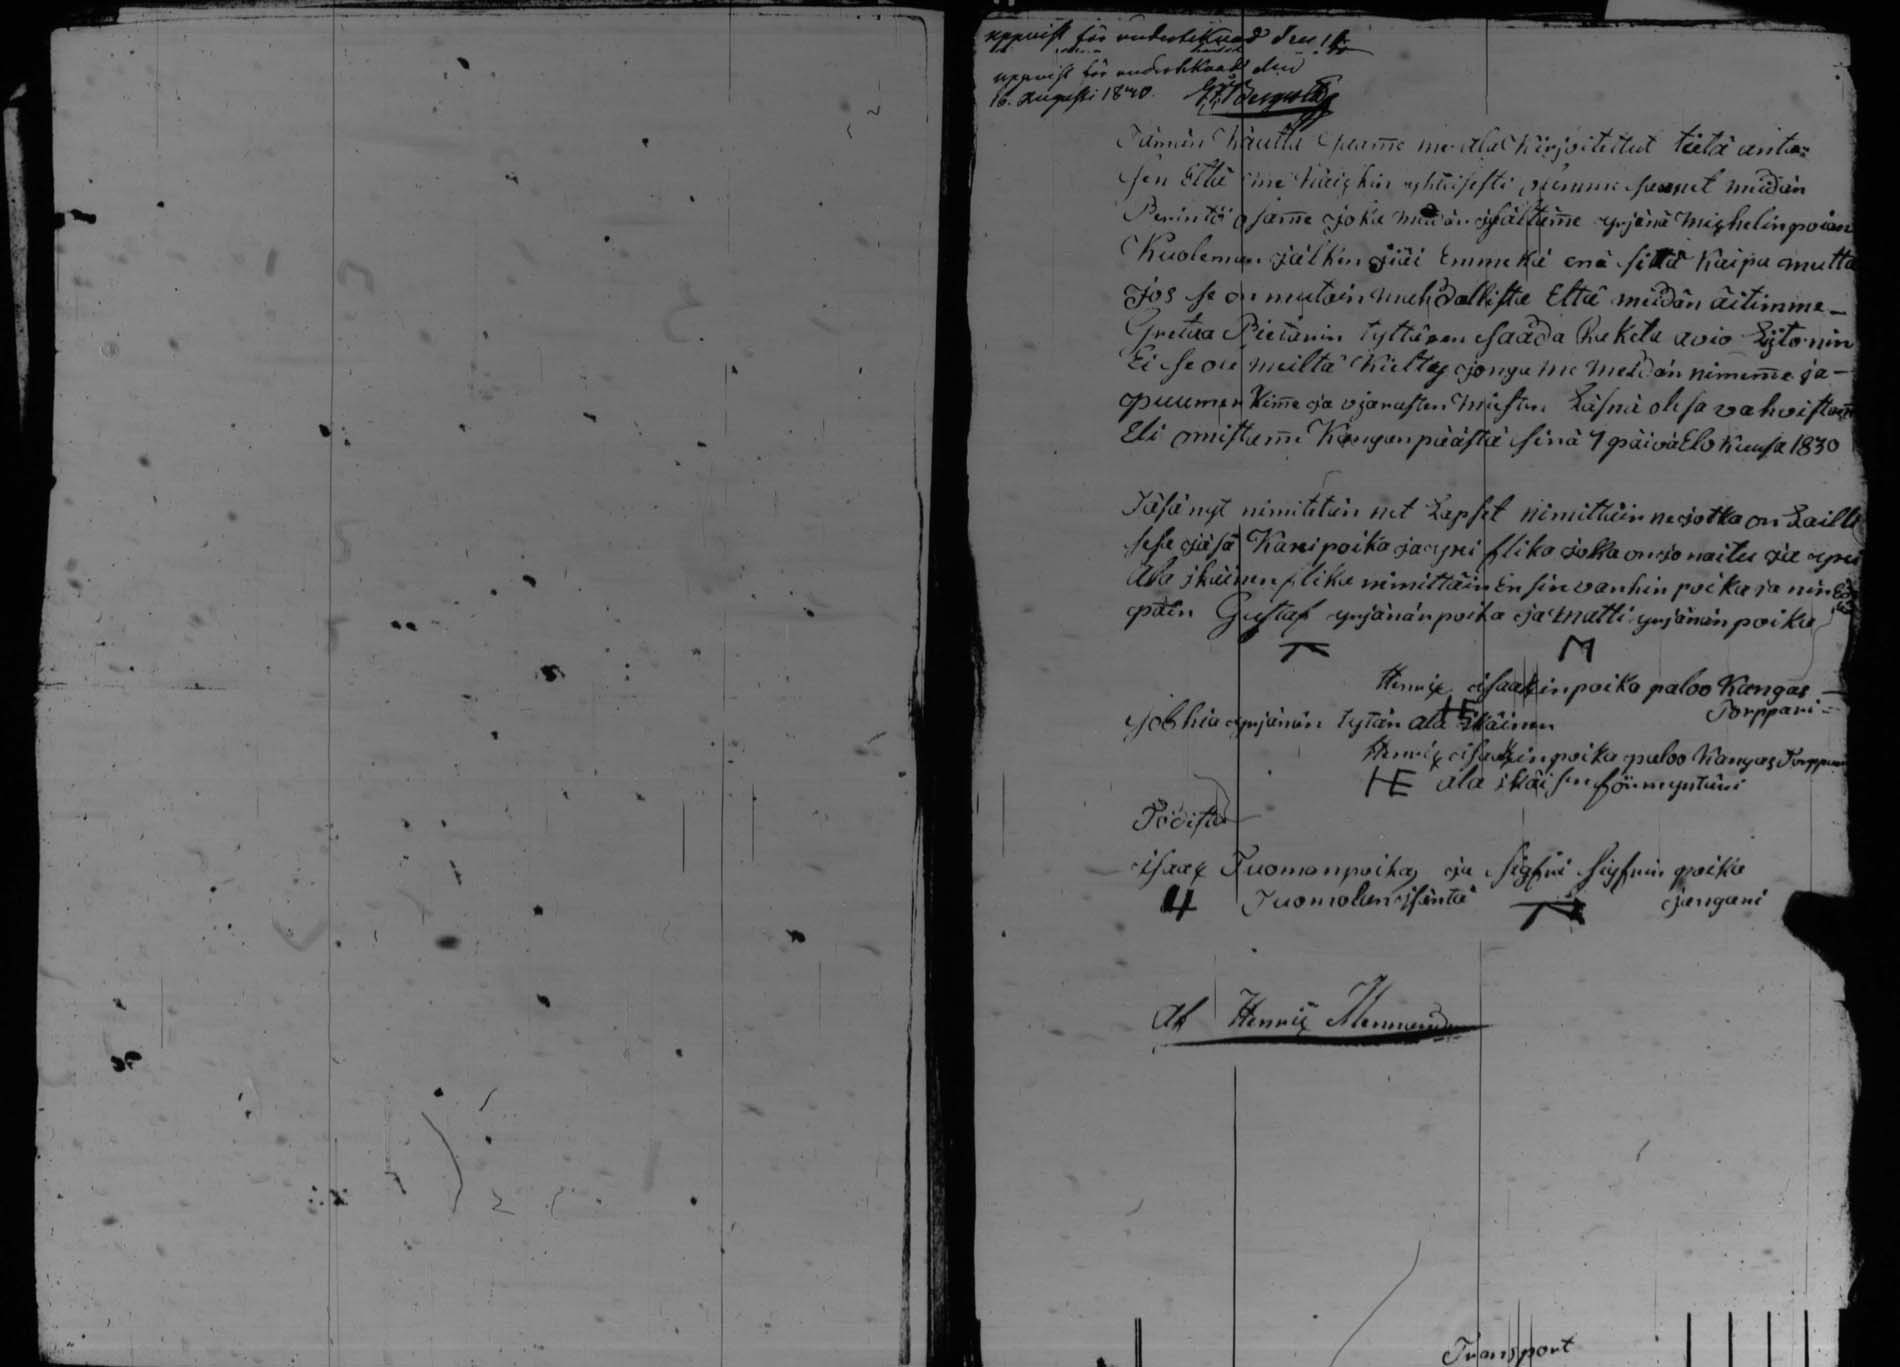 uppvist för undertecknad den 16
uppvist för undertecknad den
16. Augusti 1840.
Tämän Kautta me ala Kirjoitetut tietä anta=
sen Että me Kaickin yhteisesti olemme saanet meidän
Perintö osame joka meidän isältäme yrjänä Michelinpoian
Kuoleman jälken jäi Emmekä enä sittä Kaipa mutta
jos se on mutoin mahdollista Että meidän äitimme
Gretaa Pietarin tyttären saada Raketa avio Liitonin
Ei se ole meiltä Kieltty jonga me meidän nimeme ja
puumerkime ja vjarasten miesten Läsnä olesa vahvistame
Eli omistame Kangan päästä sinä 7 päivä Elo Kuusa 1830
Täsä nyt nimitetän net Lapset nimittäin ne jotka on Laille
sesa jäsä Kaxi poika ja yxi flika jokka on jo naitu ja yxi
Ala ikäinen flika nimittäin Ensin vanhin poika ja nin Edes
päin Gustaf yrjänän poika ja matti yrjänän poika
M
Henrix isaakin poika paloo Kangas
Torppari
HE
sobhia yrjänän tytär ala ikäinen
Henrix isaakin poika paloo Kangas Torppari
HE ala ikäisen förmyntäri
Todista
isaax Tuomonpoika ja Sigfrii Sigfrin poika
4 Tuomolan isäntä jangani
Af Henrix
Transport